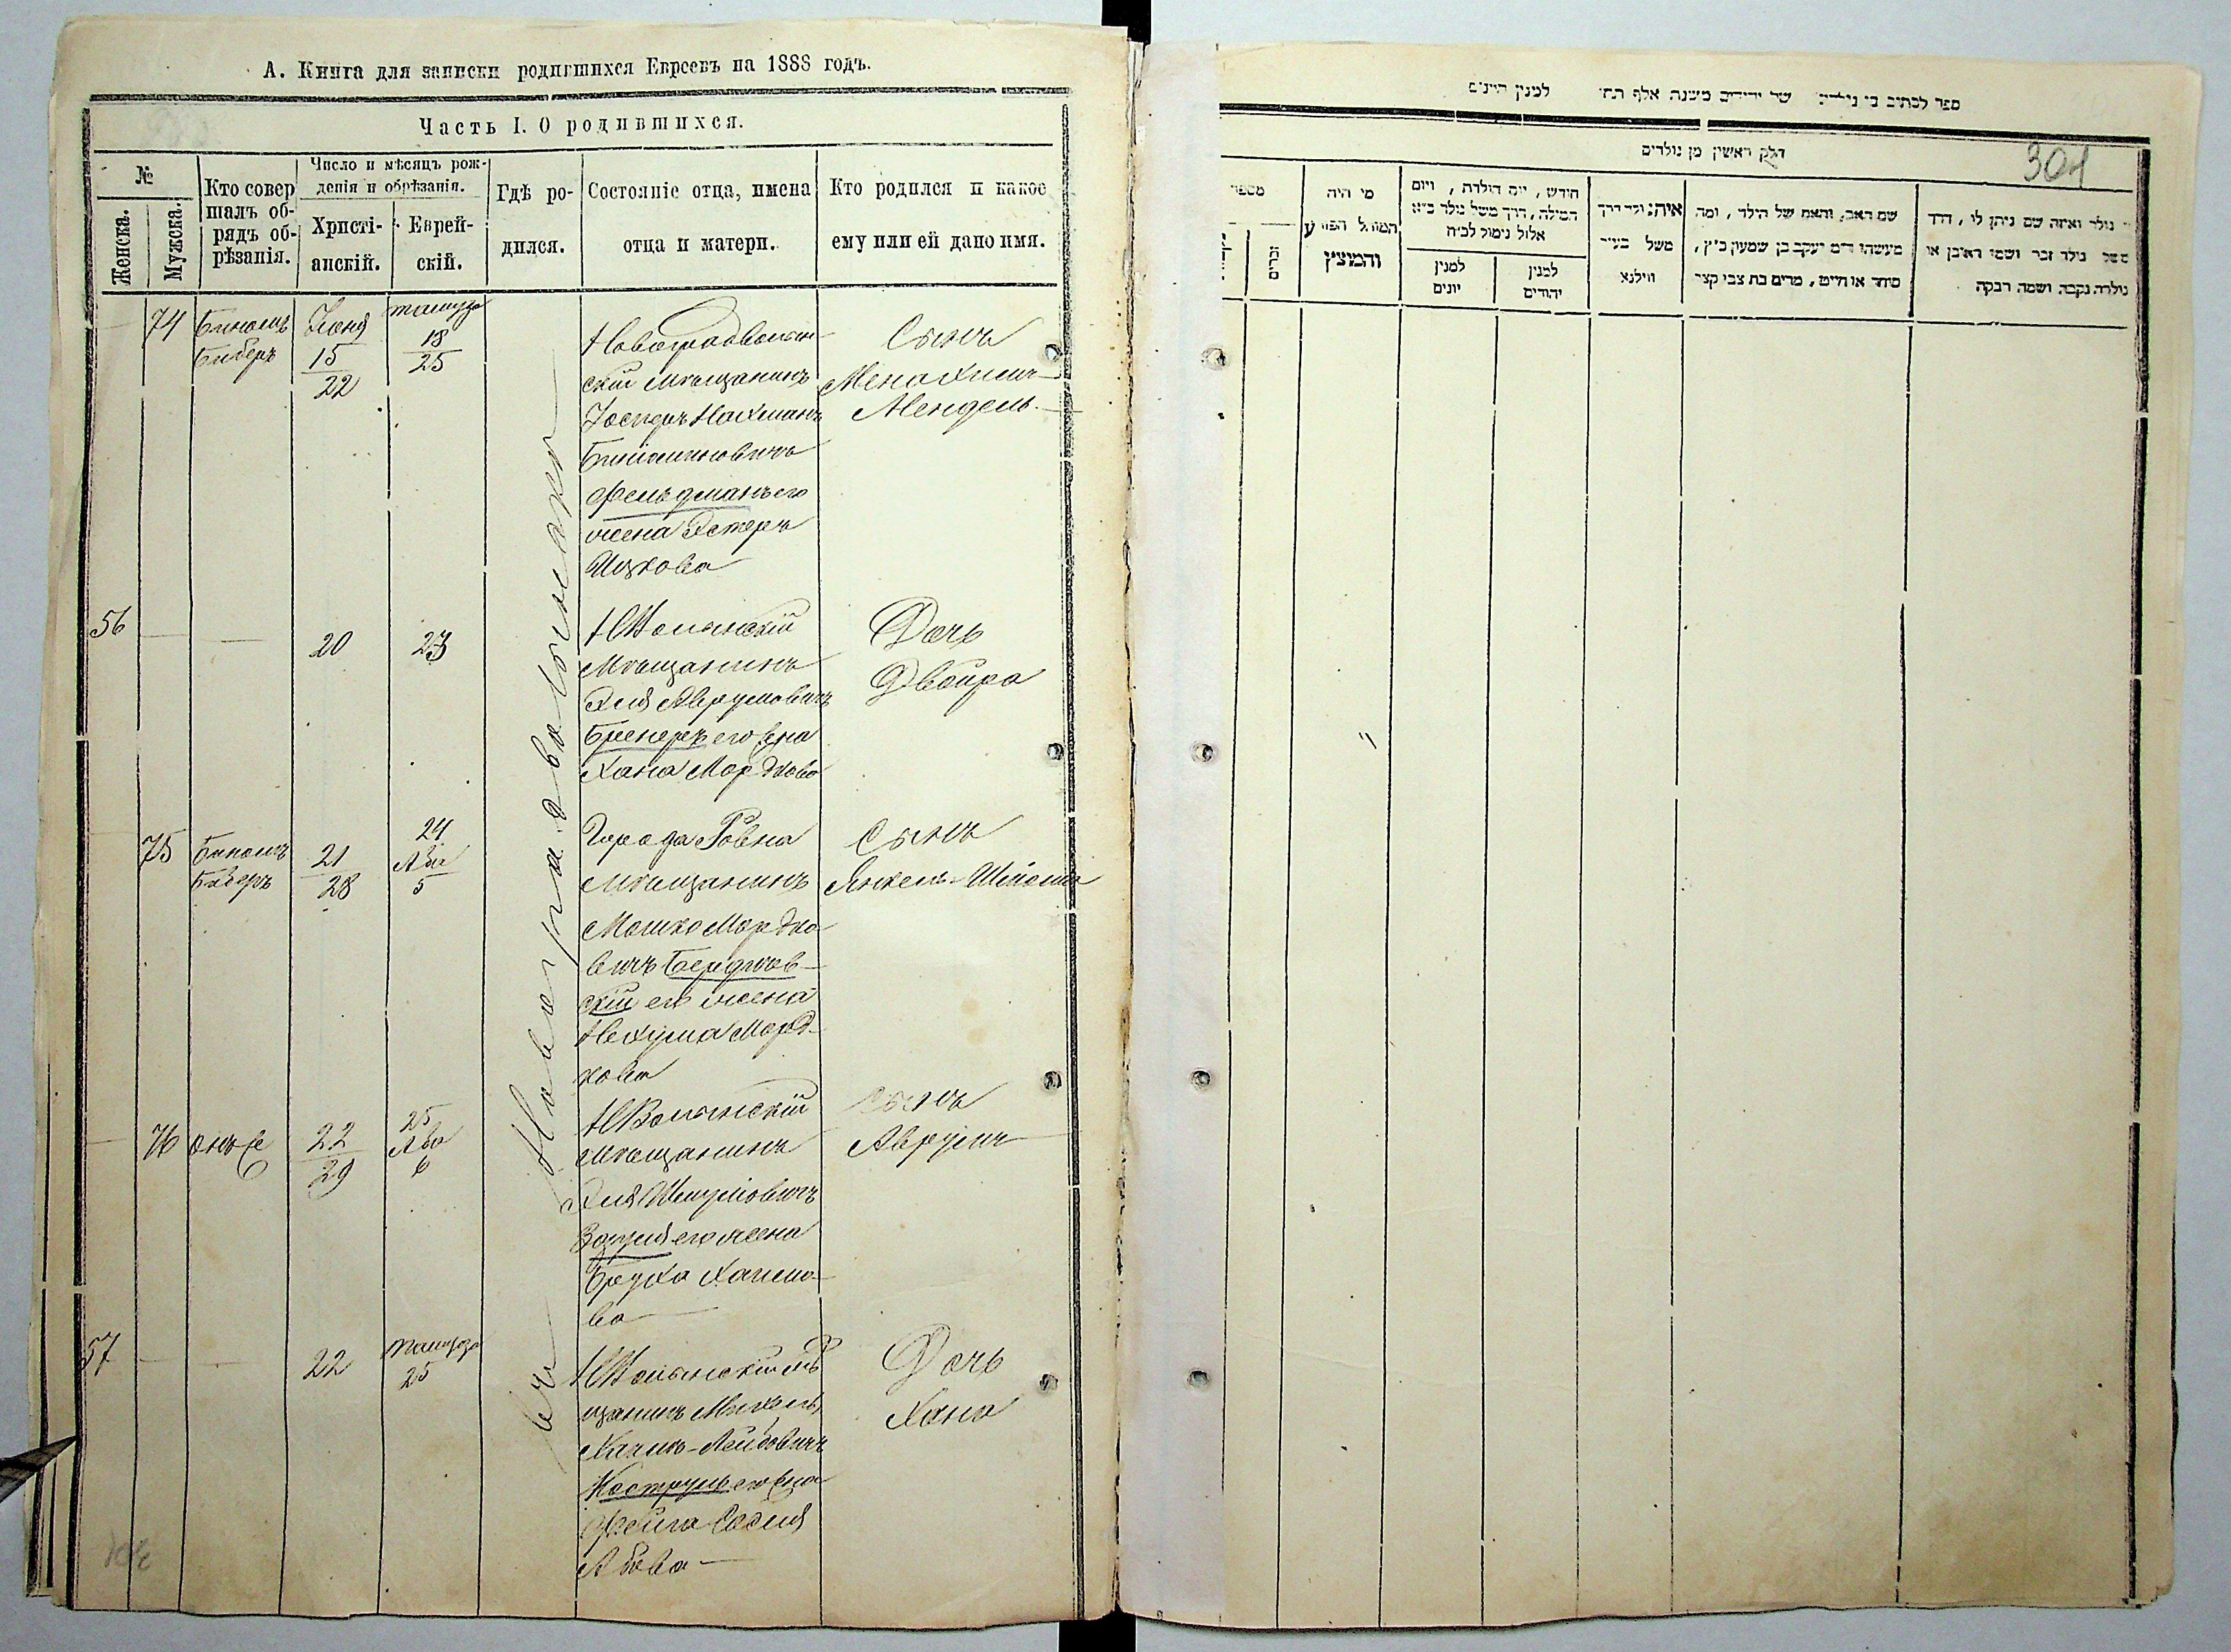 А. Книга для записки родившихся Евреевъ на 1888 годъ.
Часть I. О родившихся.
№
Женска.
Мужска.
Кто совер
шалъ об-
рядъ об-
рѣзанія.
Число и мѣсяцъ рож-
денія и обрѣзанія.
Христі-
анскій.
Еврей-
скій.
Гдѣ ро-
дился.
Состояніе отца, имена
отца и матери.
Кто родился и какое
ему или ей дано имя.
въ Новоградволынскѣ
74
Биномъ
Биберъ
Іюня
15
22
тамуза
18
25
Новоградволын-
скій мѣщанинъ
Іосперъ Нахманъ
Биніаминовичъ
Фельдманъ его
жена Эстеръ
Ицкова
Сынъ
Менахимъ-
Мендель
56
20
23
НВолынскій
мѣщанинъ
Эля Аврумовичъ
Бренеръ его жена
Хана Мордкова
Дочь
Двойра
75
Биномъ
Биберъ
21
28
24
Ава
5
Города Ровна
мѣщанинъ
Мошко Мордко-
вичъ Бердичев-
скій его жена
Нехума Морд-
кова
Сынъ
Янкель-Шлёма
76
онъ же
22
29
25
Ава
6
НВолынскій
мѣщанинъ
Эля Шмулёвичъ
его жена
Бруха Хаимо-
ва
Сынъ
Аврумъ
57
22
тамуза
25
НВолынскій мѣ
щанинъ Михель
Хаимъ-Лейбовичъ
Кострунъ его жена
Фейга Бася
Абова
Дочь
Хана
ספר לכתיב בו נולדים של יהודים משנה אלף תת למנין היונים
חלק ראשון מן נולדים
304
מספר
זכרים
מי היה
המוהל הפורע
והמוצץ
חודש, יום הולדת, ויום
המילה, דרך משל נולד כ״א
אלול נימול לכ״ח
למנין
יונים
למנין
יהודים
איה נולד דרך
משל בעיר
ווילנא
שם האב, והאם של הילד, ומה
מעשהו ד״מ יעקב בן שמעון כ״ץ,
סוחר או חייט, מרים בת צבי קצר
נולד ואיזה שם ניתן לו, דרך
משל נולד זכר ושמו ראובן או
נולדה נקבה ושמה רבקה